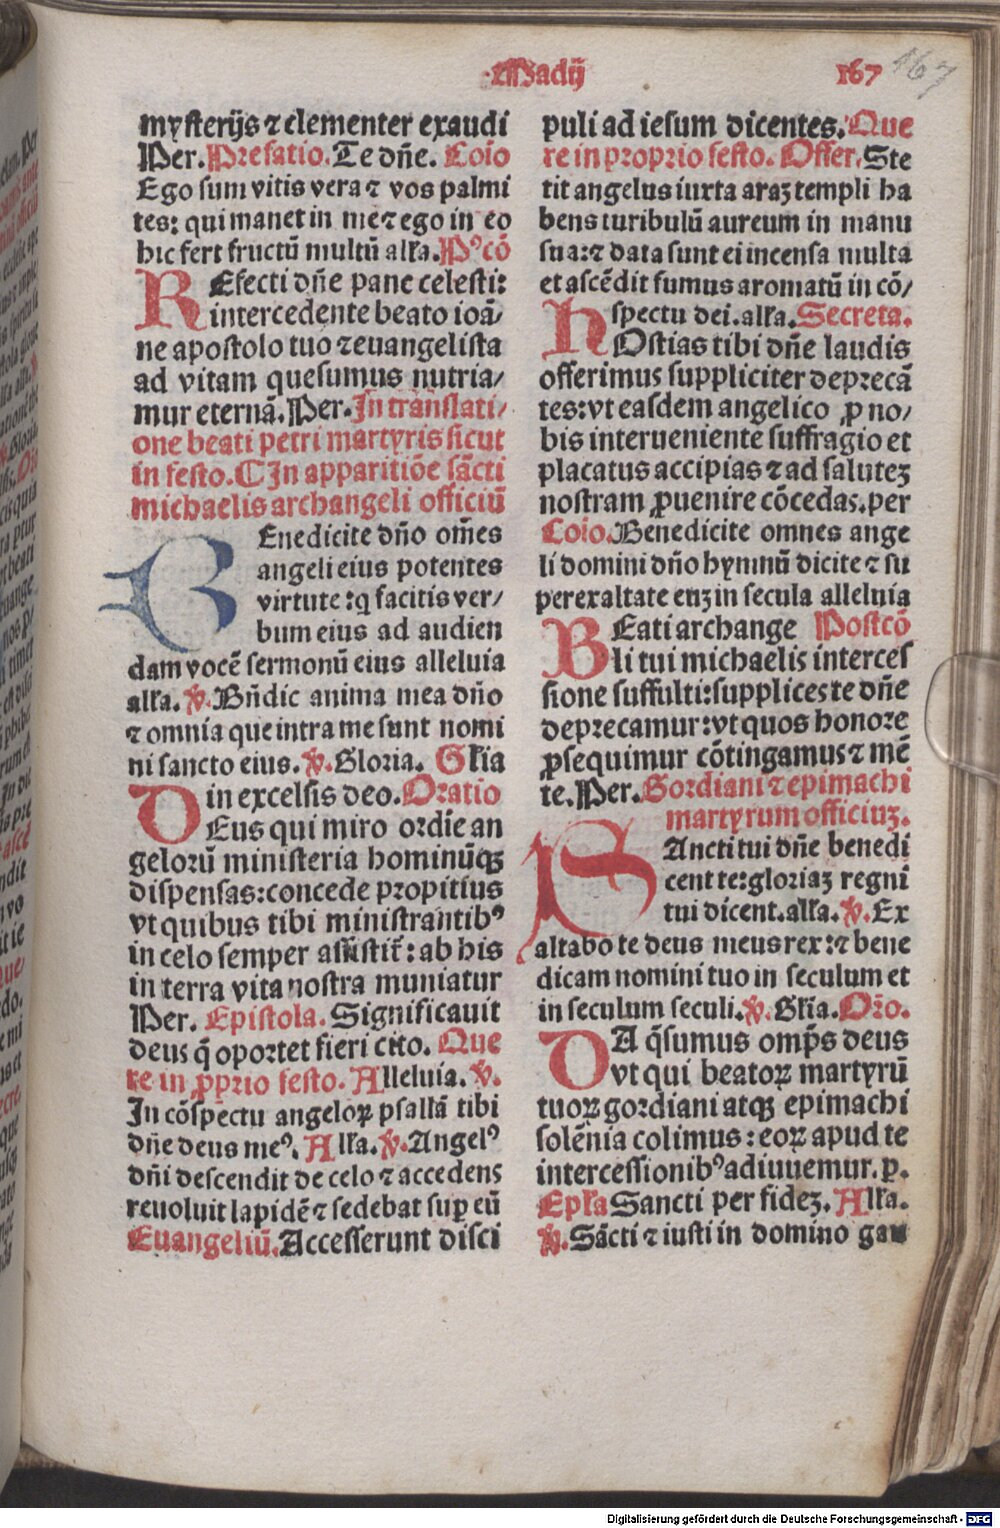 Madij
167
167
mysterijs ⁊ clementer exaudi
Per. Prefatio. Te dn̄e. Coīo
Ego sum vitis vera ⁊ vos palmi
tes: qui manet in me ⁊ ego in eo
hic fert fructū multū alľa. Pꝰcō
REfecti dn̄e pane celesti:
intercedente beato ioā/
ne apostolo tuo ⁊ euangelista
ad vitam quesumus nutria/
mur eternā. Per. In translati/
one beati petri martyris sicut
in festo. ⸿ In apparitiōe sācti
michaelis archangeli officiū
BEnedicite dn̄o om̄es
angeli eius potentes
virtute: q facitis ver/
bum eius ad audien
dam vocē sermonū eius alleluia
alľa. ℣. Bn̄dic anima mea dn̄o
⁊ omnia que intra me sunt nomi
ni sancto eius. ℣. Gloria. Gľia
in excelsis deo. Oratio
DEus qui miro ordīe an
gelorū ministeria hominūqꝫ
dispensas: concede propitius
vt quibus tibi ministrantibꝰ
in celo semper assistit̄: ab his
in terra vita nostra muniatur
Per. Epistola. Significauit
deus q̄ oportet fieri cito. Que
re in ꝓprio festo. Alleluia. ℣.
In cōspectu angeloꝝ psallā tibi
dn̄e deus meꝰ. Alľa. ℣. Angelꝰ
dn̄i descendit de celo ⁊ accedens
reuoluit lapidē ⁊ sedebat suꝑ eū
Euangeliū. Accesserunt disci
puli ad iesum dicentes. Que
re in proprio festo. Offer. Ste
tit angelus iuxta araꝫ templi ha
bens turibulū aureum in manu
sua: ⁊ data sunt ei incensa multa
et ascēdit fumus aromatū in cō/
spectu dei. alľa. Secreta.
HOstias tibi dn̄e laudis
offerimus suppliciter deprecā
tes: vt easdem angelico ꝓ no/
bis interueniente suffragio et
placatus accipias ⁊ ad saluteꝫ
nostram ꝓuenire cōcedas. per
Coīo. Benedicite omnes ange
li domini dn̄o hymnū dicite ⁊ su
perexaltate euꝫ in secula alleluia
BEati archange Postcō
li tui michaelis interces
sione suffulti: supplices te dn̄e
deprecamur: vt quos honore
ꝓsequimur cōtingamus ⁊ mē
te. Per. Gordiani ⁊ epimachi
martyrum officiuꝫ.
SAncti tui dn̄e benedi
cent te: gloriaꝫ regni
tui dicent. alľa. ℣. Ex
altabo te deus meus rex: ⁊ bene
dicam nomini tuo in seculum et
in seculum seculi. ℣. Gľia. Or̄o.
DA q̄sumus omp̄s deus
vt qui beatoꝝ martyrū
tuoꝝ gordiani atqꝫ epimachi
solēnia colimus: eoꝝ apud te
intercessionibꝰ adiuuemur. ꝑ.
Epľa Sancti per fideꝫ. Alľa.
℣. Sācti ⁊ iusti in domino gau
Digitalisierung gefördert durch die Deutsche Forschungsgemeinschaft - DFG